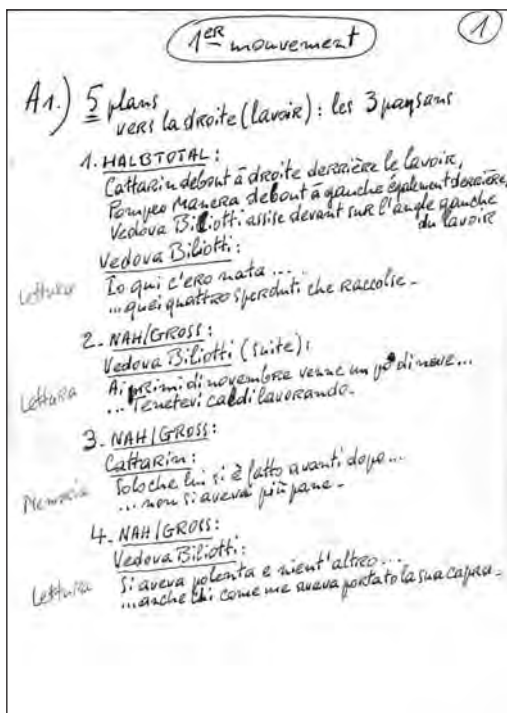 1ER mouvement
1
A1.) 5 plans
vers la droite (lavoir) : les 3 paysans
1. HALBTOTAL :
Cattarin debout à droite derrière le lavoir,
Pompeo Manera debout à gauche également derrière,
Vedova Biliotti assise devant sur l'angle gauche
du lavoir
Vedova Biliotti :
Lettura Io qui c'ero nata ...
... quei quattro sperduti che raccolse -
2. NAH/GROSS :
Vedova Biliotti (suite) :
Lettura Ai primi di novembre venne un po' di neve ...
... Tenetevi caldi lavorando.
3. NAH/GROSS :
Cattarin :
Memoria Solo che lui si è fatto avanti dopo ...
... non si aveva più pane -
4. NAH/GROSS :
Vedova Biliotti :
Lettura Si aveva polenta e nient'altro ...
... anche chi come me aveva portato la sua capra -